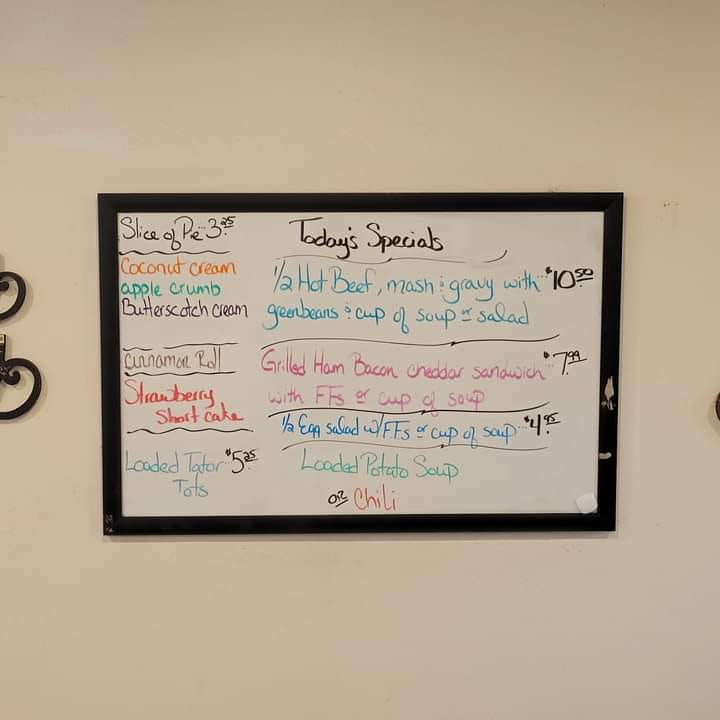 Slice of Pie... 3.25
Coconut cream
apple crumb
Butterscotch cream
Cinnamon Roll
Strawberry
Short cake
Loaded Tator... $5.25
Tots
Today's Specials
1/2 Hot Beef, mash & gravy with... $10.50
greenbeans & cup of soup or salad
Grilled Ham Bacon cheddar sandwich $7.99
with FFs or cup of soup
1/2 Egg salad w/FFs or cup of soup... $4.95
Loaded Potato Soup
or Chili